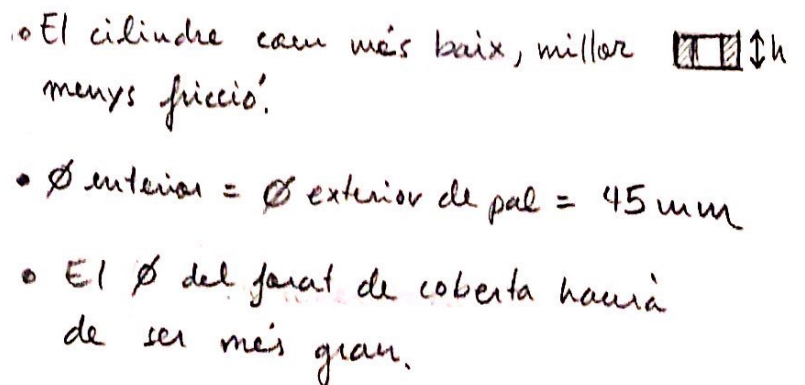 • El cilindre com més baix, millor h
menys fricció.
• Ø interior = Ø exterior de pal = 45 mm
• El Ø del forat de coberta haurà
de ser més gran.